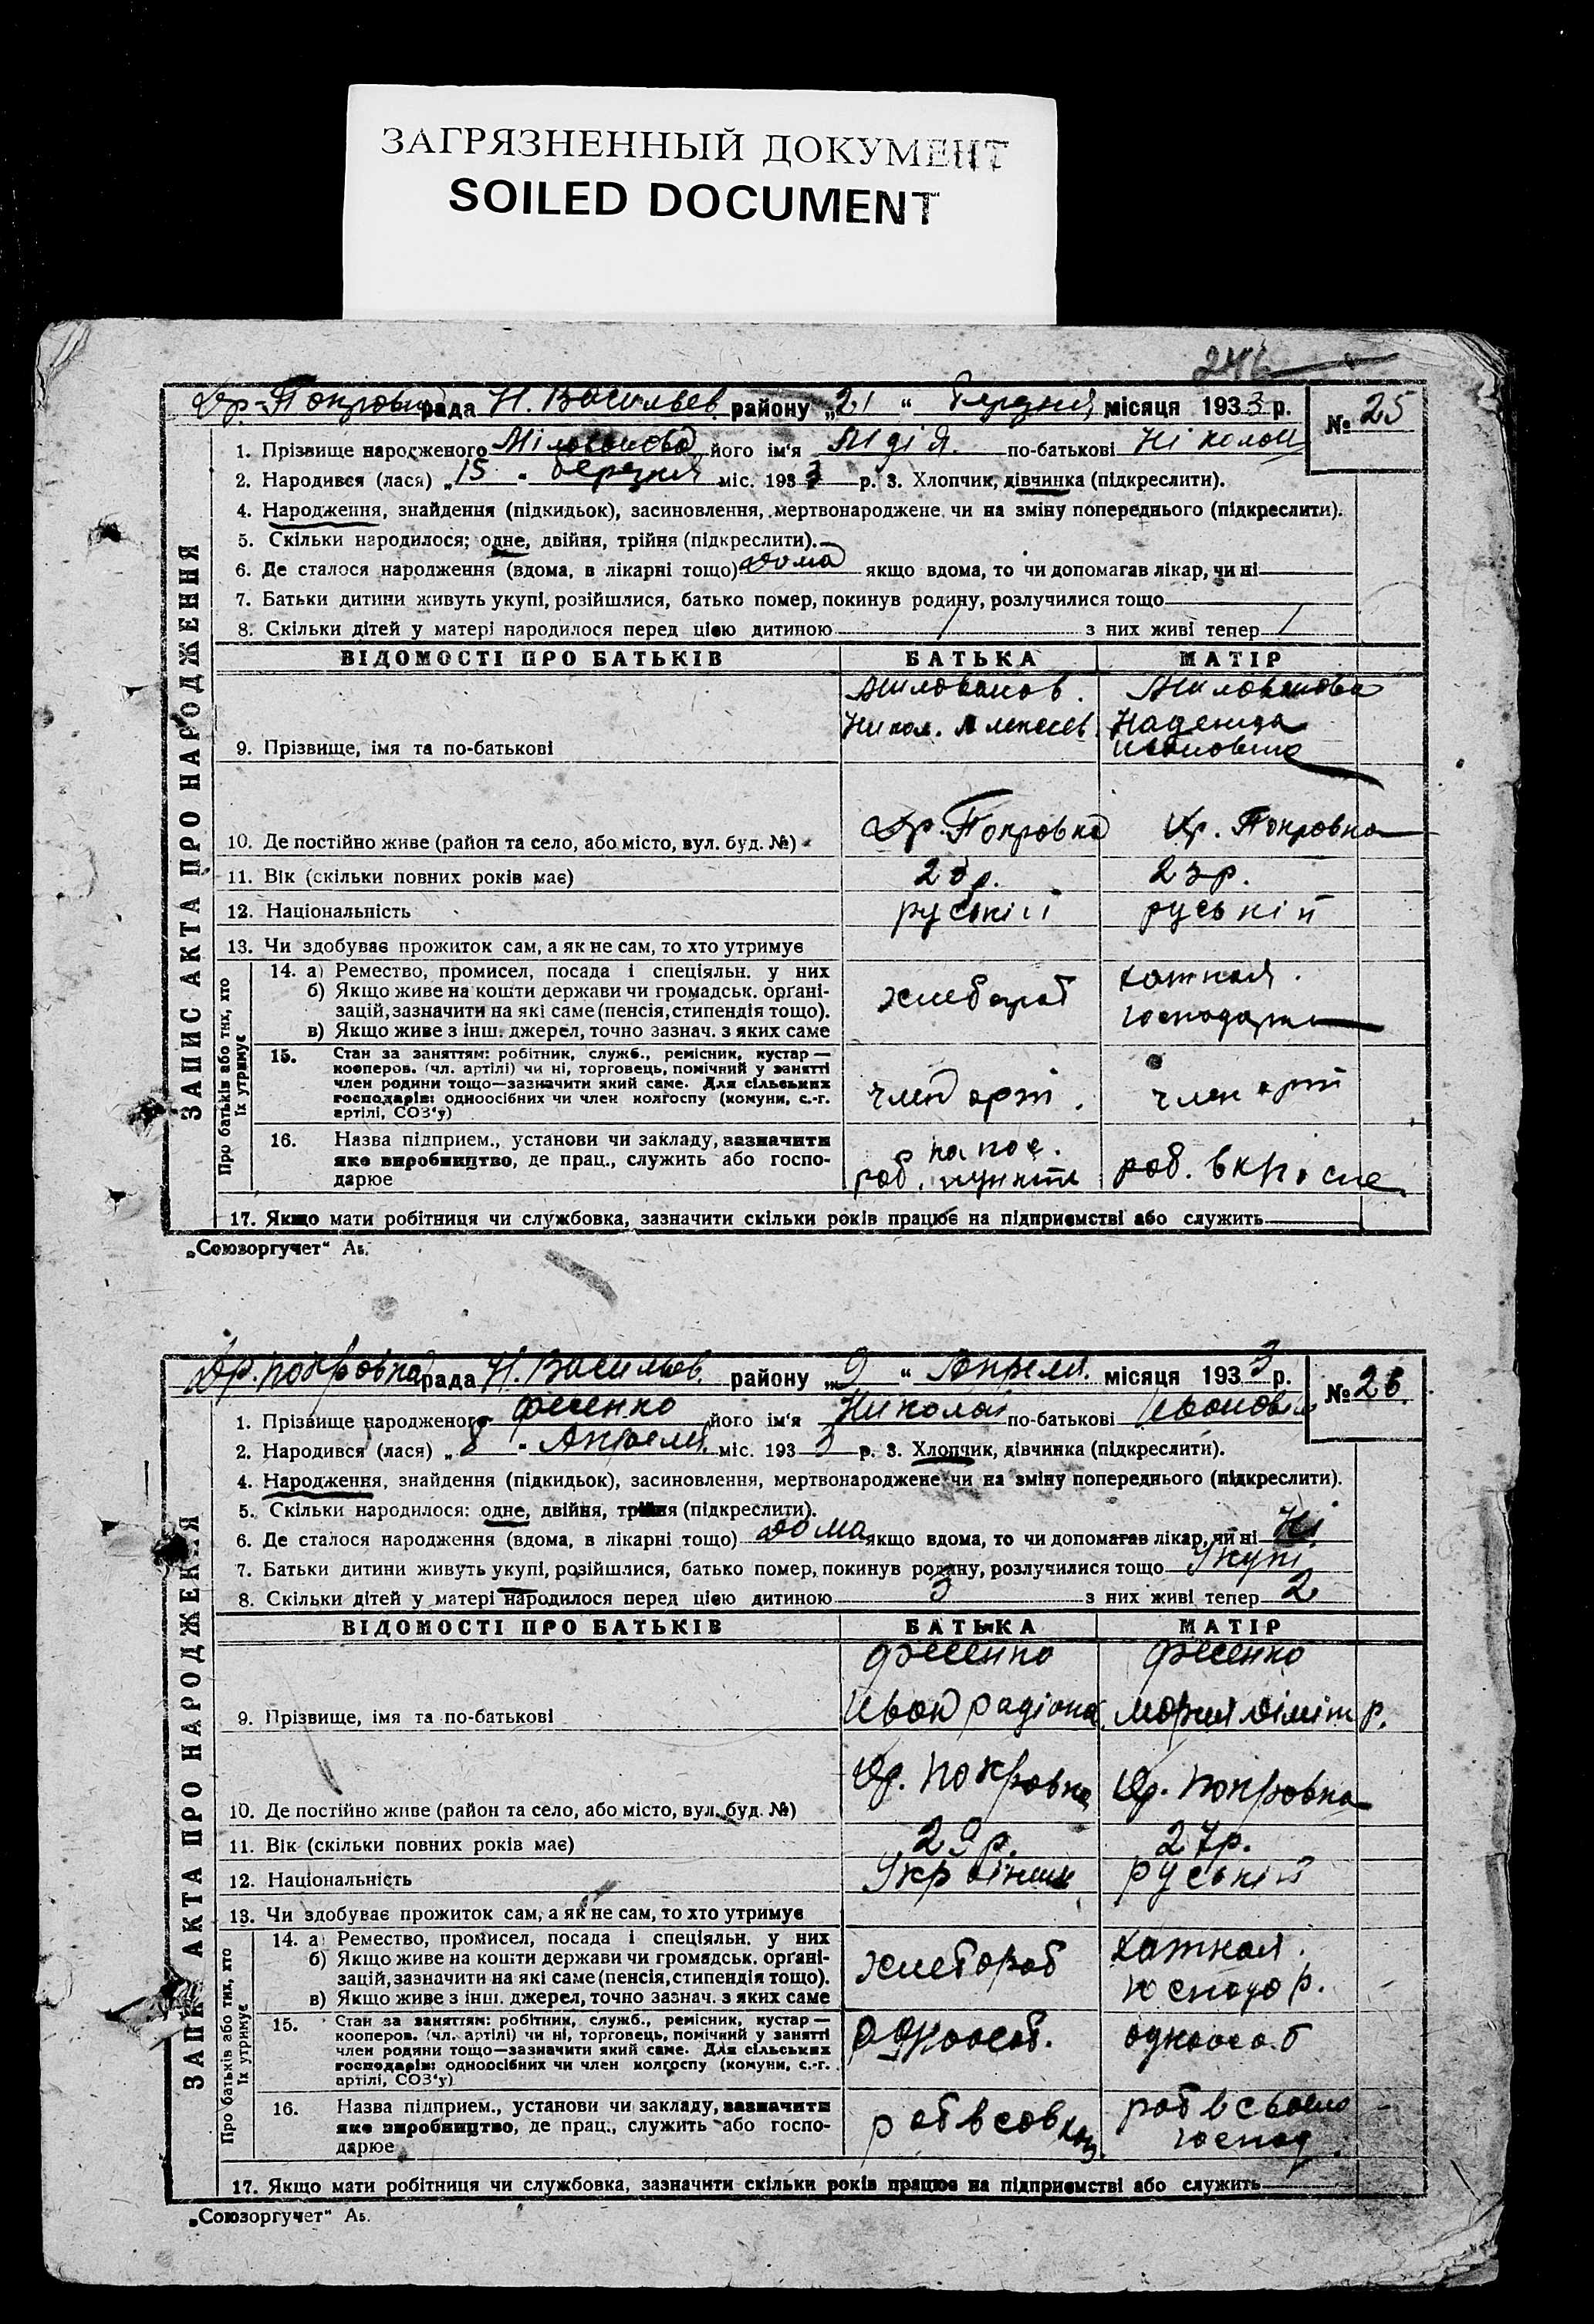 ЗАГРЯЗНЕННЫЙ ДОКУМЕНТ
SOILED DOCUMENT
Др-Покровка рада Н. Васильев. району „21“ березня місяця 1933 р.
№ 25
1. Прізвище народженого Міловонова його ім'я Лідія. по-батькові Ніколай
2. Народився (лася) „15 - березня міс. 1933 р. 3. Хлопчик, дівчинка (підкреслити).
4. Народження, знайдення (підкидьок), засиновлення, мертвонароджене чи на зміну попереднього (підкреслити).
5. Скільки народилося; одне, двійня, трійня (підкреслити).
6. Де сталося народження (вдома, в лікарні тощо) дома якщо вдома, то чи допомагав лікар, чи ні
7. Батьки дитини живуть укупі, розійшлися, батько помер, покинув родину, розлучилися тощо
8. Скільки дітей у матері народилося перед цією дитиною 1 з них живі тепер 1
ЗАПИС АКТА ПРО НАРОДЖЕННЯ
ВІДОМОСТІ ПРО БАТЬКІВ БАТЬКА МАТІР
Милованов. Милованова
Никол. Алексеев. Надежда
9. Прізвище, імя та по-батькові Ивановна
Др. Покровка Др. Покровка
10. Де постійно живе (район та село, або місто, вул. буд. №)
11. Вік (скільки повних років має) 23р. 23р.
12. Національність руський руській
13. Чи здобуває прожиток сам, а як не сам, то хто утримує
Про батьків або тих, хто їх утримує
14. а) Ремество, промисел, посада і спеціяльн. у них
б) Якщо живе на кошти держави чи громадськ. орґані-
зацій, зазначити на які саме (пенсія, стипендія тощо).
в) Якщо живе з інш. джерел, точно зазнач. з яких саме
хлебороб хатная.
господарка
15. Стан за заняттям: робітник, служб., ремісник, кустар—
кооперов. (чл. артілі) чи ні, торговець, помічний у занятті
член родини тощо—зазначити який саме. Для сільських
господарів: одноосібних чи член колгоспу (комуни, с.-г.
артілі, СОЗ'у)
член арт. член арт
16. Назва підприєм., установи чи закладу, зазначити
яке виробництво, де прац., служить або госпо-
дарює
на пос.
роб. пункте роб. в
17. Якщо мати робітниця чи службовка, зазначити скільки років працює на підприємстві або служить
„Союзоргучет“ Ав.
Др. Покровка рада Н. Васильев. району „9“ Апреля. місяця 1933 р.
№ 26.
1. Прізвище народженого Фесенко його ім'я Николай по-батькові Иванович
2. Народився (лася) „8 - Апреля. міс. 1933 р. 3. Хлопчик, дівчинка (підкреслити).
4. Народження, знайдення (підкидьок), засиновлення, мертвонароджене чи на зміну попереднього (підкреслити).
5. Скільки народилося: одне, двійня, трійня (підкреслити).
6. Де сталося народження (вдома, в лікарні тощо) дома якщо вдома, то чи допомагав лікар, чи ні Ні
7. Батьки дитини живуть укупі, розійшлися, батько помер, покинув родину, розлучилися тощо Укупі
8. Скільки дітей у матері народилося перед цією дитиною 3 з них живі тепер 2
ЗАПИС АКТА ПРО НАРОДЖЕННЯ
ВІДОМОСТІ ПРО БАТЬКІВ БАТЬКА МАТІР
Фесенко Фесенко
9. Прізвище, імя та по-батькові Иван Радіона. Мория Дімітр.
Др. Покровка Др. Покровка
10. Де постійно живе (район та село, або місто, вул. буд. №)
11. Вік (скільки повних років має) 29р. 27р.
12. Національність Українец руській
13. Чи здобуває прожиток сам, а як не сам, то хто утримує
Про батьків або тих, хто їх утримує
14. а) Ремество, промисел, посада і спеціяльн. у них
б) Якщо живе на кошти держави чи громадськ. орґані-
зацій, зазначити на які саме (пенсія, стипендія тощо).
в) Якщо живе з інш. джерел, точно зазнач. з яких саме
хлебороб хатная.
господар.
15. Стан за заняттям: робітник, служб., ремісник, кустар—
кооперов. (чл. артілі) чи ні, торговець, помічний у занятті
член родини тощо—зазначити який саме. Для сільських
господарів: одноосібних чи член колгоспу (комуни, с.-г.
артілі, СОЗ'у)
одноособ. одноособ
16. Назва підприєм., установи чи закладу, зазначити
яке виробництво, де прац., служить або госпо-
дарює
роб в совхоз. роб в своем
господ.
17. Якщо мати робітниця чи службовка, зазначити скільки років працює на підприємстві або служить
„Союзоргучет“ Ав.